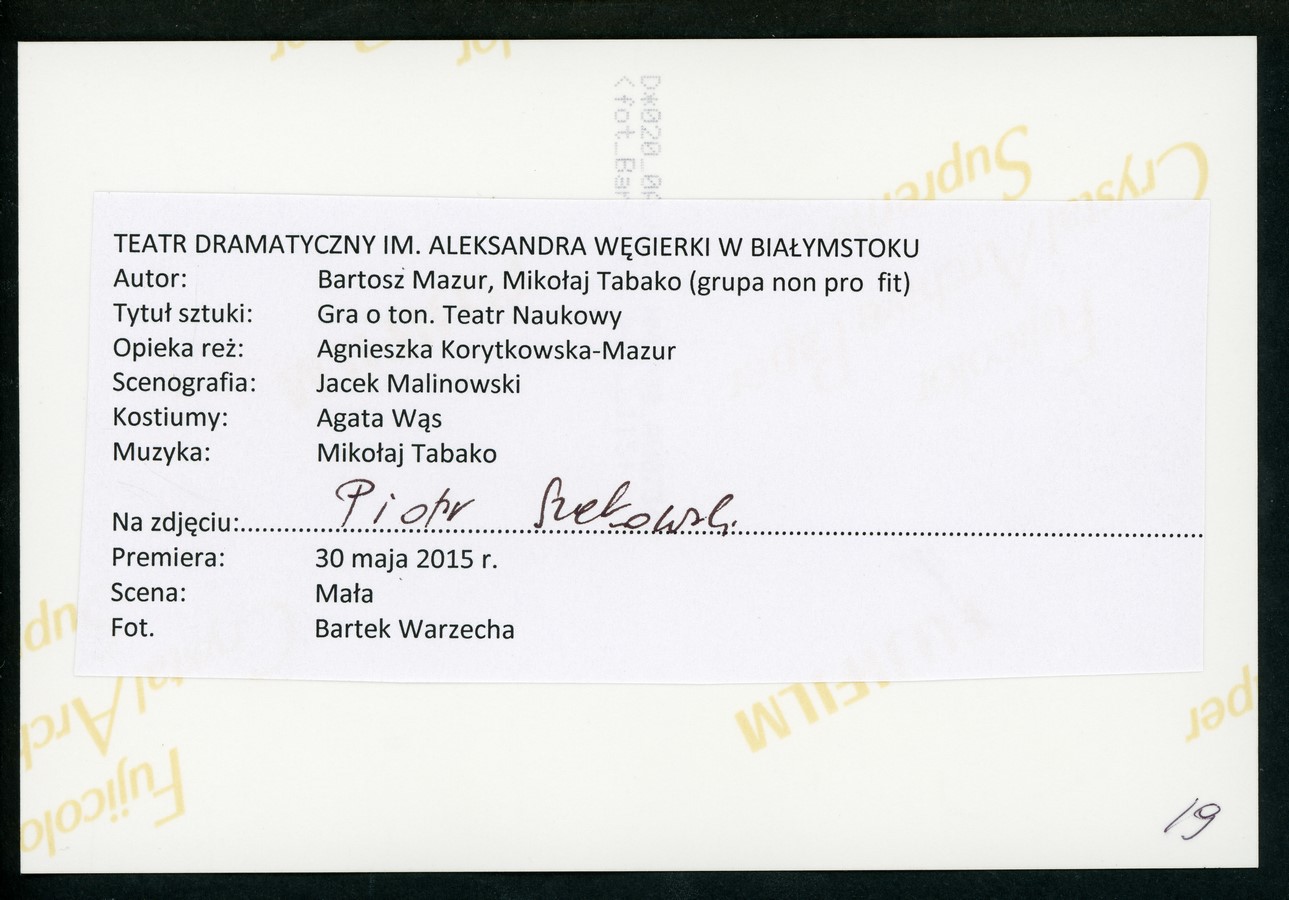 D*020_0
<fot_Bar
Supreme
Crystal
TEATR DRAMATYCZNY IM. ALEKSANDRA WĘGIERKI W BIAŁYMSTOKU
Autor: Bartosz Mazur, Mikołaj Tabako (grupa non pro  fit)
Tytuł sztuki: Gra o ton. Teatr Naukowy
Opieka reż: Agnieszka Korytkowska-Mazur
Scenografia: Jacek Malinowski
Kostiumy: Agata Wąs
Muzyka: Mikołaj Tabako
Na zdjęciu: Piotr
Premiera: 30 maja 2015 r.
Scena: Mała
Fot. Bartek Warzecha
FILM
Fujicolo
19